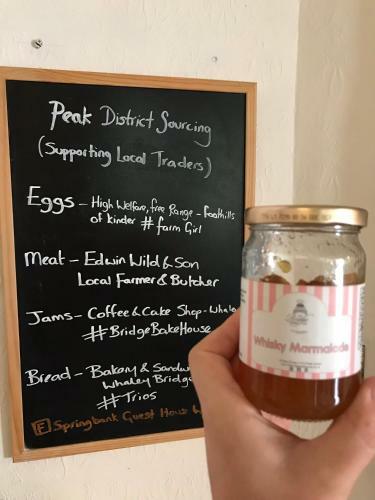 Peak District Sourcing
(Supporting Local Traders)
Eggs - High Welfare, free Range - Foothills
of kinder # farm Girl
Meat - Edwin Wild & Son
Local Farmer & Butcher
Jams - Coffee & Cake Shop - Whale
#BridgeBakeHouse
Bread - Bakery & Sandw
Whaley Bridge
# Trios
F Springbank Guest House W
Whisky Marmalade